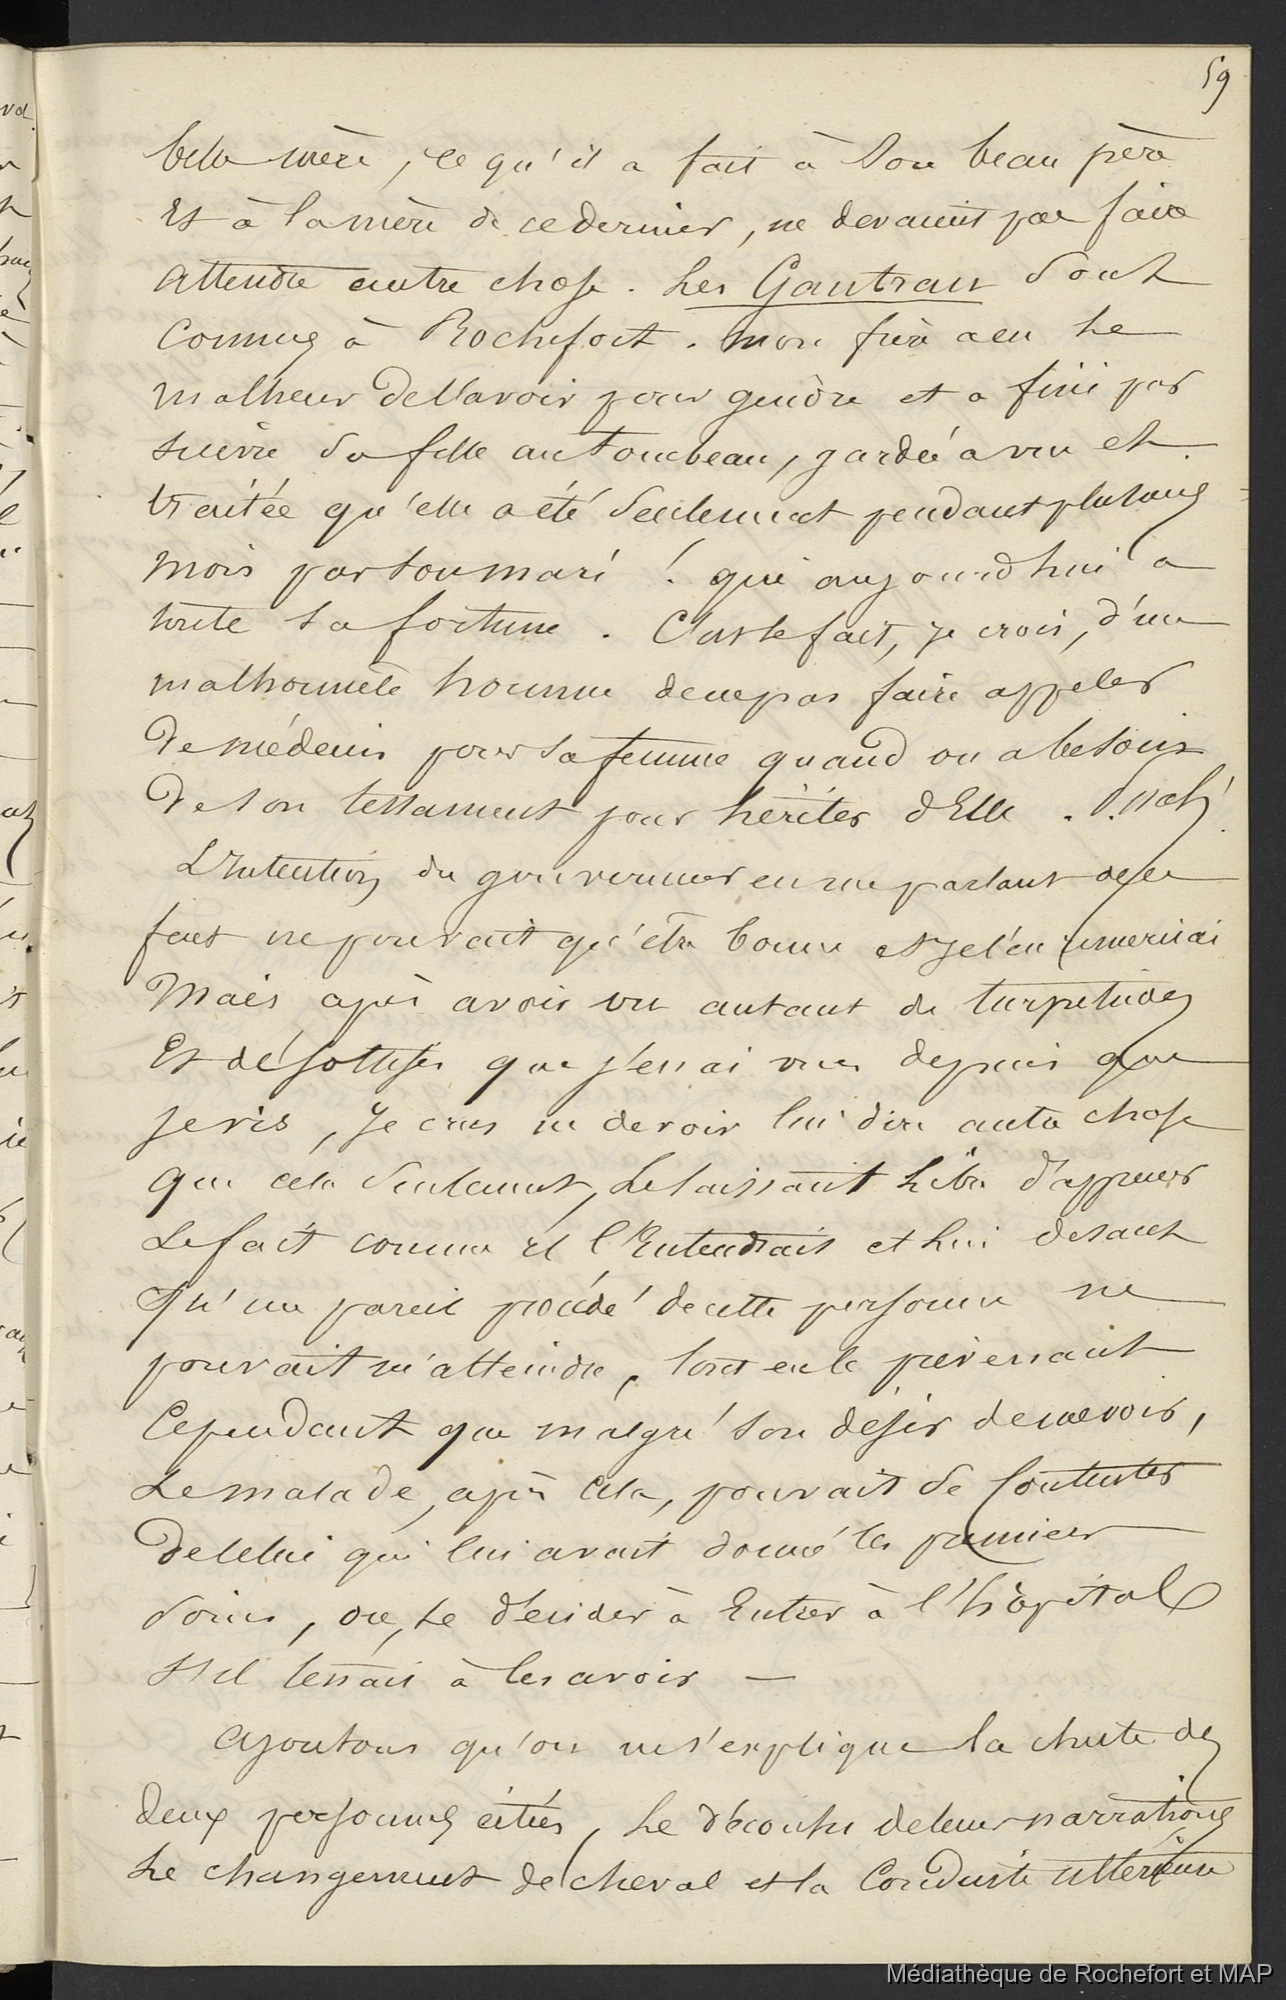 59
belle mère, ce qu'il a fait à son beau père
Et à la mère de ce dernier, ne devaient pas faire
attendre autre chose. Les Gautran sont
connus à Rochefort. mon frère a eu le
malheur de l'avoir pour gendre et a fini par
suivre sa fille au tombeau, gardée à vue et
traitée qu'elle a été seulement pendant plusieurs
mois par son mari ! qui aujourd'hui a
toute sa fortune. C'est le fait, je crois, d'un
malhonnête homme de ne pas faire appeler
de médecin pour sa femme quand on a besoin
de son testament pour hériter d'Elle.
L'Intention du gouverneur en me parlant de ce
fait ne pouvait qu'être bonne et je l'en remerciai
Mais après avoir vu autant de turpitudes
Et de sottises que j'en ai vues depuis que
je vis, je crus ne devoir lui dire autre chose
que cela seulement, le laissant libre d'appuyer
le fait comme il l'Entendrait et lui disant
qu'un pareil procédé de cette personne ne
pouvait m'atteindre, tout en le prévenant
Cependant que malgré son désir de me voir,
le malade, après cela, pouvait se contenter
de celui qui lui avait donné les premiers
soins, ou, se décider à Entrer à l'hôpital
s'il tenait à les avoir —
Ajoutons qu'on ne s'explique la chute des
deux personnes citées, le décousu de leurs narrations
Le changement de cheval et la Conduite ultérieure
Médiathèque de Rochefort et MAP